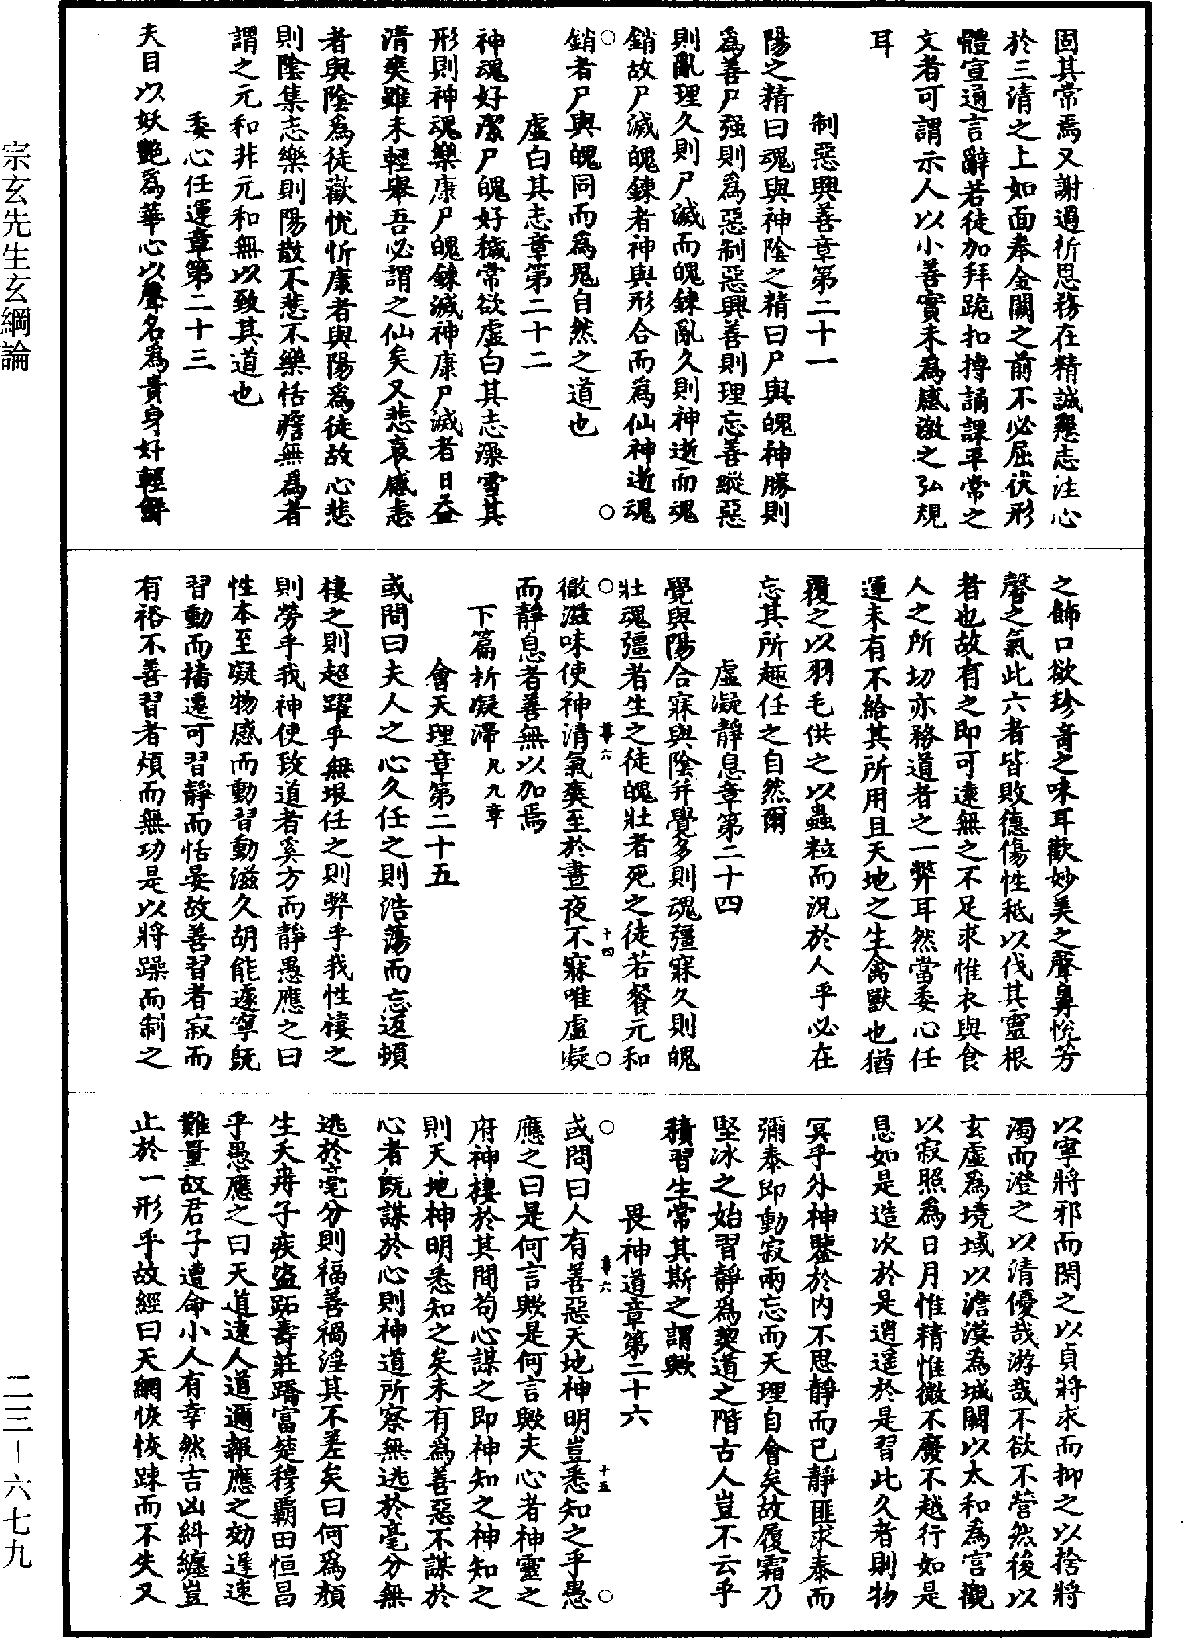 固其常焉又謝過祈恩務在精誠懇志注心
於三清之上如面奉金闕之前不必屈伏形
體宣通言辭若徒加拜跪扣摶誦課平常之
文者可謂示人以小善實未為感激之弘規
耳
制惡興善章第二十一
陽之精曰魂與神陰之精曰尸與魄神勝則
為善尸强則為惡制惡興善則理忘善縱惡
則亂理久則尸滅而魄鍊亂久則神逝而魂
銷故尸滅魄鍊者神與形合而為仙神逝魂
銷者尸與魄同而為鬼自然之道也
虛白其志章第二十二
神魂好潔尸魄好穢常欲虛白其志澡雪其
形則神魂樂康尸魄鍊滅神康尸滅者日益
清爽雖未輕舉吾必謂之仙矣又悲哀感恚
者與陰為徒歡悅忻康者與陽為徒故心悲
則陰集志樂則陽散不悲不樂恬澹無為者
謂之元和非元和無以致其道也
委心任運章第二十三
夫目以妖艷為華心以聲名為貴身好輕鮮
之飾口欲珍奇之味耳歡妙美之聲鼻悅芳
馨之氣此六者皆敗德傷性秖以伐其靈根
者也故有之即可遠無之不足求惟衣與食
人之所切亦務道者之一弊耳然當委心任
運未有不給其所用且天地之生禽獸也猶
覆之以羽毛供之以蟲粒而況於人乎必在
忘其所趣任之自然爾
虛凝靜息章第二十四
覺與陽合寐與陰并覺多則魂彊寐久則魄
壯魂彊者生之徒魄壯者死之徒若餐元和
徹滋味使神清氣爽至於晝夜不寐唯虛凝
而靜息者善無以加焉
下篇析凝滯凡九章
會天理章第二十五
或問曰夫人之心久任之則浩蕩而忘返頓
棲之則超躍乎無垠任之則弊乎我性棲之
則勞乎我神使致道者奚方而靜愚應之曰
性本至凝物感而動習動滋久胡能遽寧旣
習動而播遷可習靜而恬晏故善習者寂而
有裕不善習者煩而無功是以將躁而制之
以寧將邪而閑之以貞將求而抑之以捨將
濁而澄之以清優哉游哉不欲不營然後以
玄虛為境域以澹漠為城闕以太和為宮觀
以寂照為日月惟精惟微不廢不越行如是
息如是造次於是逍遥於是習此久者則物
冥乎外神鑒於內不思靜而已靜匪求泰而
彌泰即動寂兩忘而天理自會矣故履霜乃
堅冰之始習靜為契道之階古人豈不云乎
積習生常其斯之謂歟
畏神道章第二十六
或問曰人有善惡天地神明豈悉知之乎愚
應之曰是何言歟是何言歟夫心者神靈之
府神棲於其間苟心謀之即神知之神知之
則天地神明悉知之矣未有為善惡不謀於
心者旣謀於心則神道所察無逃於毫分無
逃於毫分則福善禍淫其不差矣曰何為顏
生夭冉子疾盗跖壽莊蹻富楚穆霸田恒昌
乎愚應之曰天道遠人道邇報應之効遲速
難量故君子遭命小人有幸然吉凶糾纏豈
止於一形乎故經曰天網恢恢踈而不失又
華六
十四
華六
十五
宗玄先生玄綱論
二三－六七九